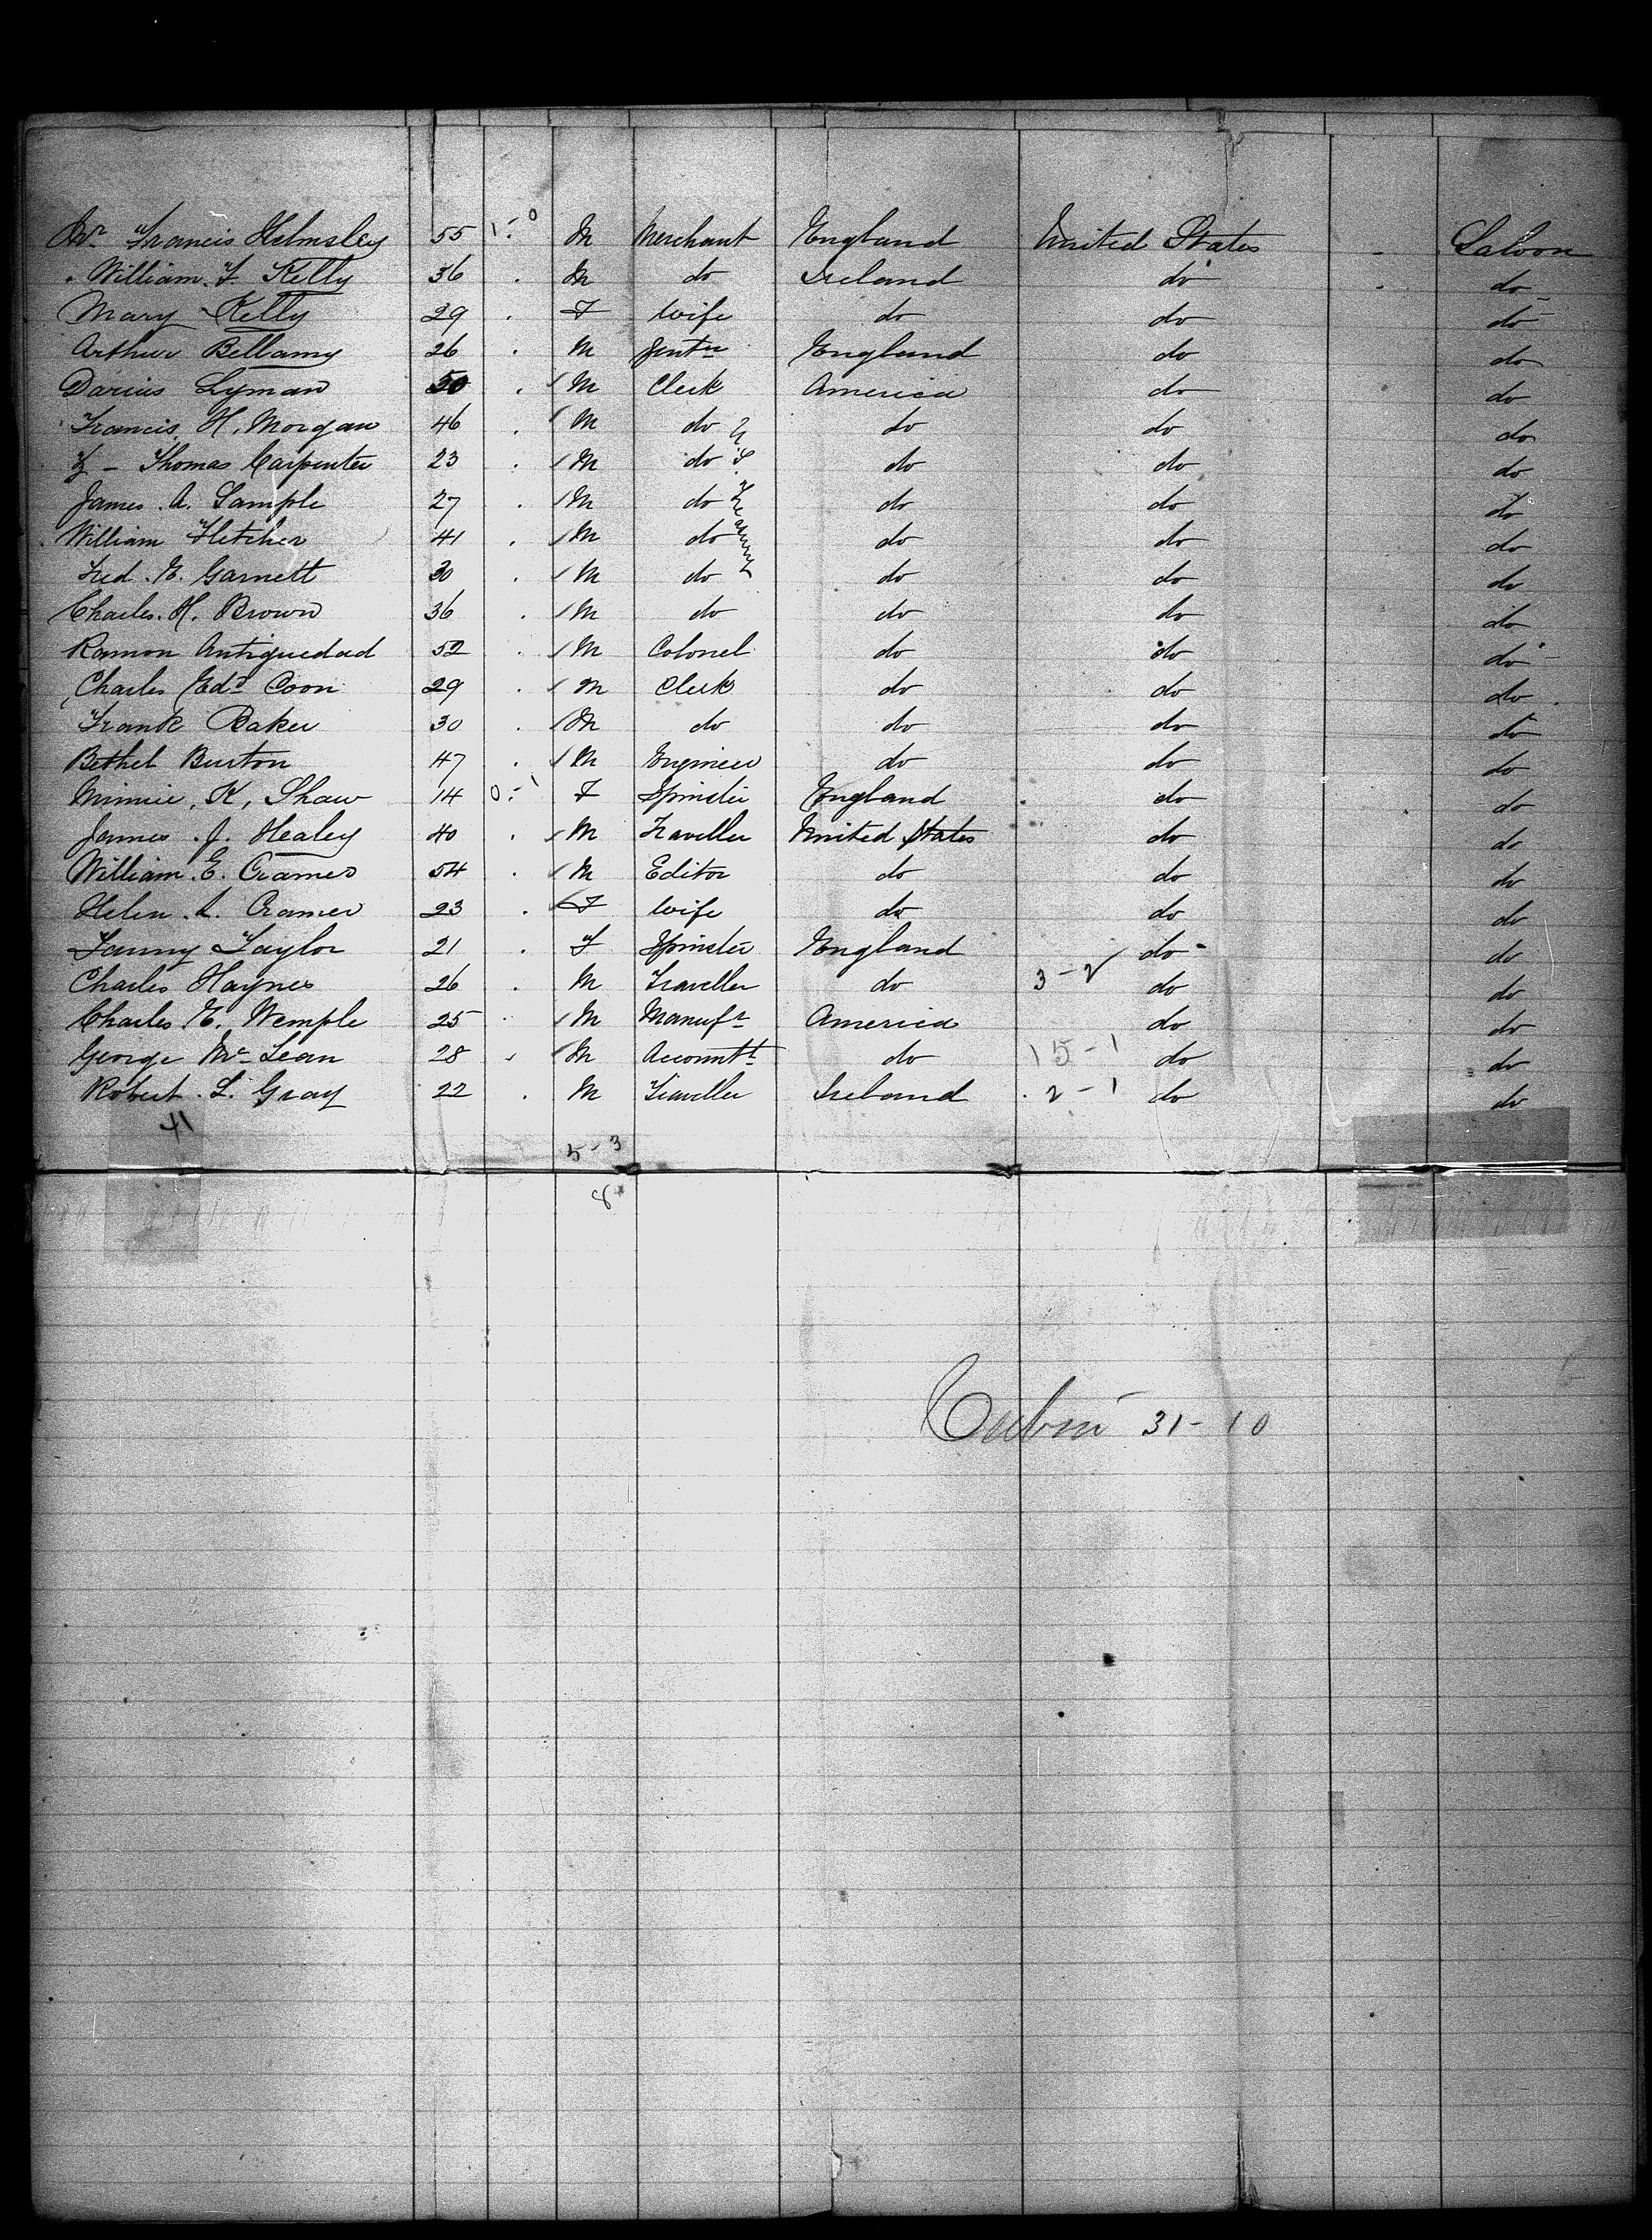 Mr. Francis Helmsley 55 1-0 M Merchant England United States - Saloon
William F. Kelly 36 . M do Ireland do - do
Mary Kelly 29 . F Wife do do do
Arthur Bellamy 26 . M Gentn England do do
Darius Lyman 50 . / M Clerk America do do
Francis H. Morgan 46 . / M do U do do do
Thomas Carpenter 23 . / M do S. do do do
James A. Sample 27 . / M do do do do
William Fletcher 41 . / M do do do do
Fred. E. Garnett 30 . / M do do do do
Treasury
Charles H. Brown 36 . / M do do do do
Ramon Antiguedad 52 . / M Colonel do do do
Charles Edd Coon 29 . / M Clerk do do do
Frank Baker 30 . / M do do do do
Bethel Burton 47 . / M Engineer do do do
Minnie K. Shaw 14 0-1 F Spinster England do do
James J. Healey 40 . / M Traveller United States do do
William E. Cramer 54 . / M Editor do do do
Helen A. Cramer 23 . / F Wife do do do
Fanny Taylor 21 . F Spinster England do do
Charles Haynes 26 . M Traveller do 3-2 do do
Charles E. Wemple 25 . / M Manufr America do do
George McLean 28 . / M Accountt do 15-1 do do
Robert L. Gray 22 . M Traveller Ireland 2-1 do do
41
5-3
8
Cabin 31-10